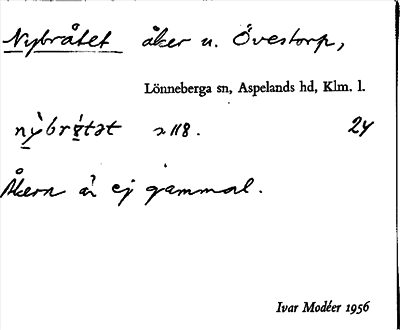 Nybråtet åker u. Övestorp,
Lönneberga sn, Aspelands hd, Klm. l.
118. 24
Åkern är ej gammal.
Ivar Modéer 1956